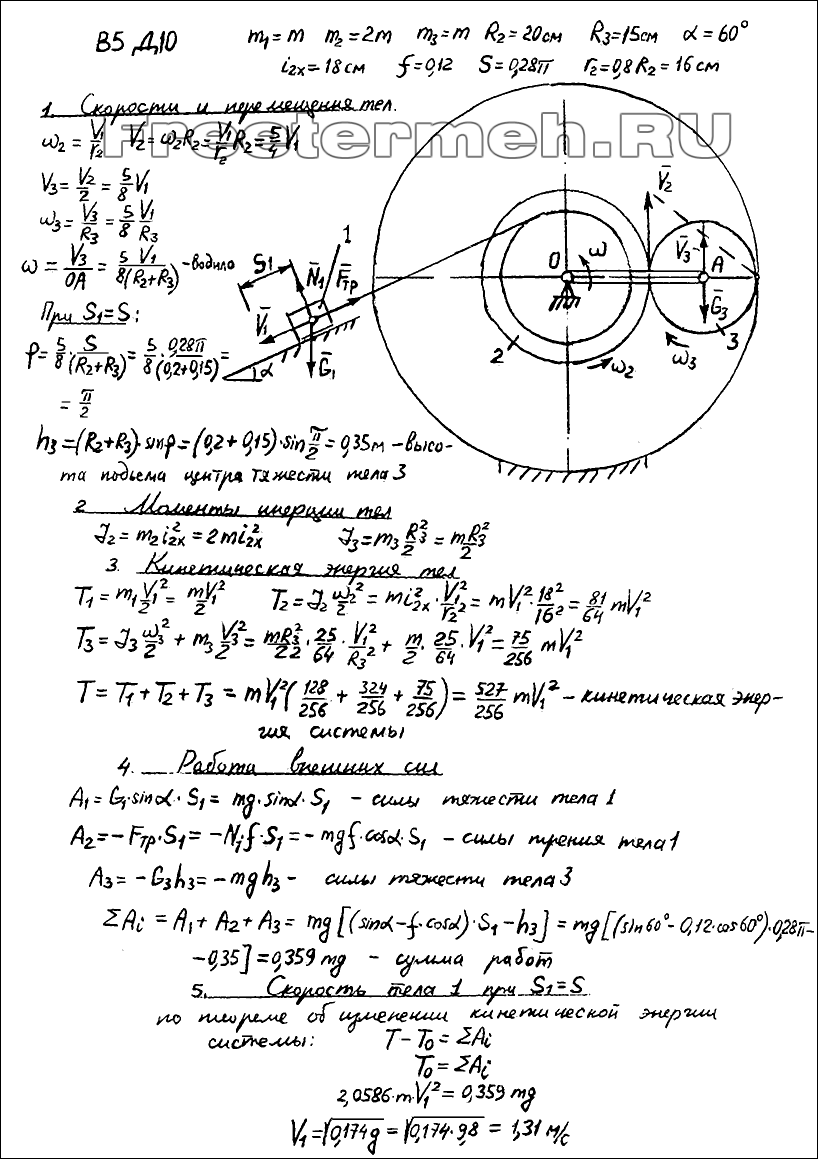 В5 Д10 m₁ = m m₂ = 2m m₃ = m R₂ = 20см R₃ = 15см α = 60°
i₂ₓ = 18 см f = 0,12 S = 0,28π r₂ = 0,8 R₂ = 16 см
1. Скорости и перемещения тел.
Frestermeh.RU
ω₂ = V₁/r₂ V₂ = ω₂R₂ = V₁/r₂ R₂ = 5/4 V₁
V₃ = V₂/2 = 5/8 V₁
ω₃ = V₃/R₃ = 5/8 V₁/R₃
ω = V₃/OA = 5/8 V₁/(R₂+R₃) - водило
При S₁ = S:
φ = 5/8 · S/(R₂+R₃) = 5/8 · 0,28π/(0,2+0,15) =
= π/2
S1 N̄₁ 1 F̄тр V̄₁ Ḡ₁ α
O ω 2 ω₂ V̄₂ V̄₃ A Ḡ₃ ω₃ 3
h₃ = (R₂+R₃)·sinφ = (0,2+0,15)·sin π/2 = 0,35м - высо-
та подъема центра тяжести тела 3
2 Моменты инерции тел
J₂ = m₂i₂ₓ² = 2mi₂ₓ² J₃ = m₃ R₃²/2 = mR₃²/2
3. Кинетическая энергия тел
T₁ = m₁ V₁²/2 = mV₁²/2 T₂ = J₂ ω₂²/2 = mi₂ₓ² · V₁²/r₂² = mV₁² · 18²/16² = 81/64 mV₁²
T₃ = J₃ ω₃²/2 + m₃ V₃²/2 = mR₃²/2·2 · 25/64 · V₁²/R₃² + m/2 · 25/64 · V₁² = 75/256 mV₁²
T = T₁ + T₂ + T₃ = mV₁²(128/256 + 324/256 + 75/256) = 527/256 mV₁² - кинетическая энер-
гия системы
4. Работа внешних сил
A₁ = G₁·sinα·S₁ = mg·sinα·S₁ - силы тяжести тела 1
A₂ = -Fтр·S₁ = -N₁f·S₁ = -mgf·cosα·S₁ - силы трения тела 1
A₃ = -G₃h₃ = -mgh₃ - силы тяжести тела 3
ΣAᵢ = A₁ + A₂ + A₃ = mg[(sinα - f·cosα)·S₁ - h₃] = mg[(sin60° - 0,12·cos60°)·0,28π -
- 0,35] = 0,359 mg - сумма работ
5. Скорость тела 1 при S₁ = S
по теореме об изменении кинетической энергии
системы: T - T₀ = ΣAᵢ
T₀ = ΣAᵢ
2,0586·m·V₁² = 0,359 mg
V₁ = √0,174g = √0,174·9,8 = 1,31 м/с